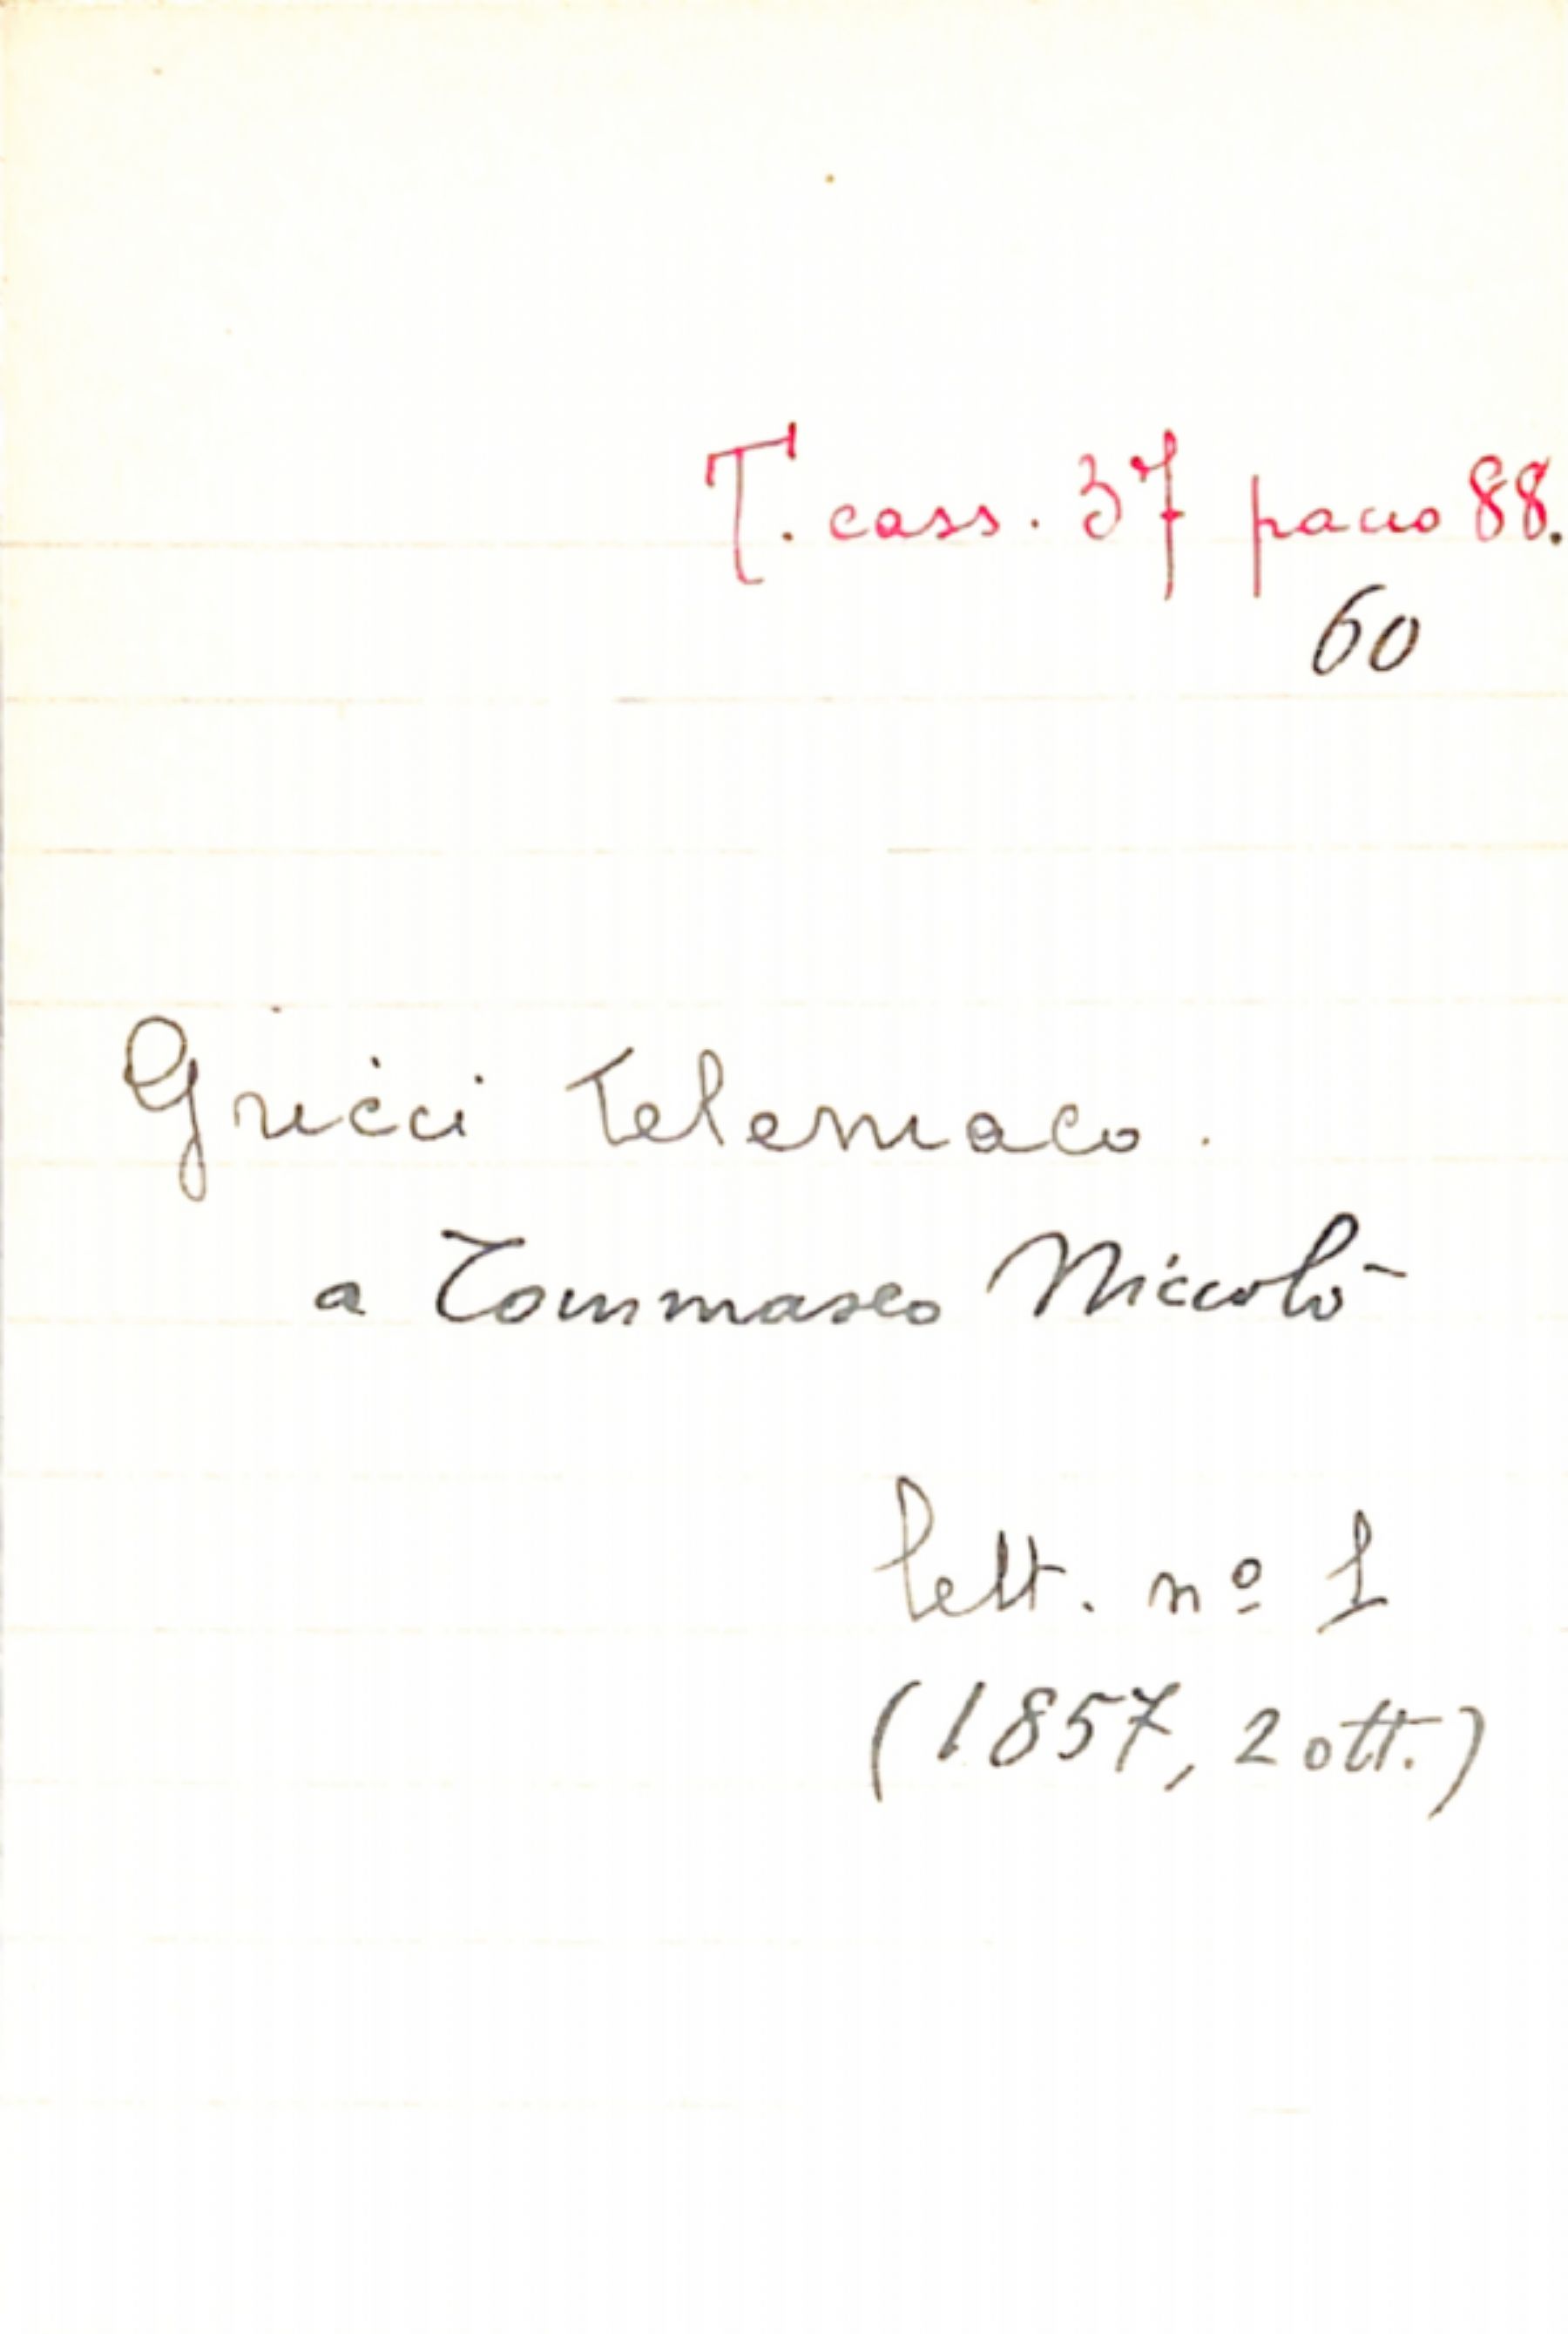 T. cass. 37 pacco 88.
60
Gricci Telemaco.
a Tommaseo Niccolò
lett. nº 1
(1857, 2 ott.)